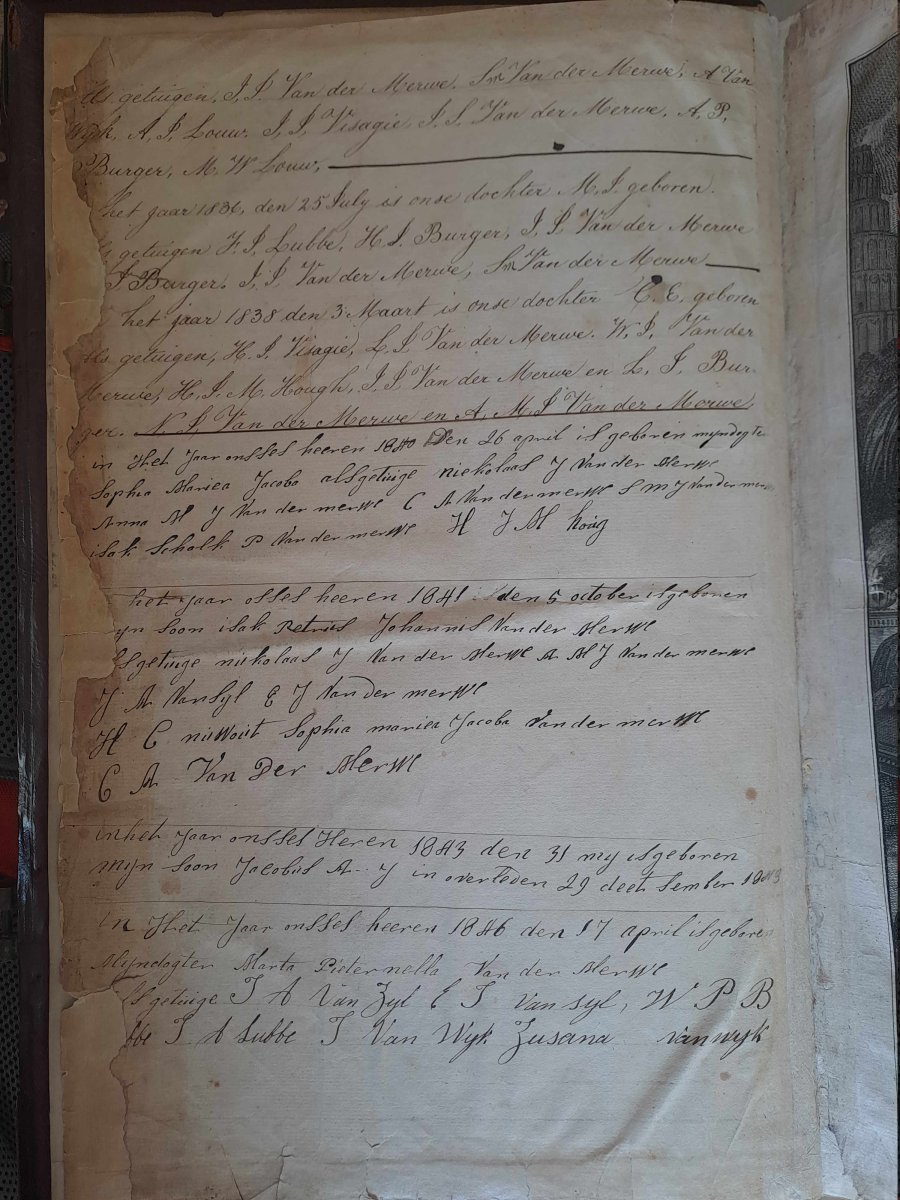 ls getuigen, J. J. Van der Merwe. Sm Van der Merwe, A Van
Wyk, A, J, Louw, J, J, Visagie, J. S. Van der Merwe, A, P,
Burger, M. W Louw,
het jaar 1836, den 25 July is onse dochter M. J. geboren.
ls getuigen F. J. Lubbe, H. J. Burger, J, J, Van der Merwe
J Burger. J, J, Van der Merwe, Sm Van der Merwe
het jaar 1838 den 3 Maart is onse dochter C. E. geboren
ls getuigen, H. J. Visagie, L. J, Van der Merwe. W. J, Van der
Merwe, H, J. M. Hough, J, J Van der Merwe en L. J, Bur-
ger. N. J, Van der Merwe en A, M. J Van der Merwe,
in Het Jaar onsses heeren 1840 Den 26 april is geboren myndogte
Sophia Mariea Jacoba alsgetuige niekolaas J Van der Merwe
Anna M J Van der merwe C A Van dermerwe S M J Vander mer
isak Schalk P Van dermerwe H J M houg
het jaar osses heeren 1841 den 5 october isgeboren
yn soon isak Petrus Johannis Van der Merwe
lsgetuige niekolaas J Van der Merwe A M J Van der merwe
J A Vansyl E J Van der merwe
H C nuwout Sophia mariea Jacoba Van der merwe
C A Van Der Merwe
inhet Jaar onsses Heren 1843 den 31 my isgeboren
mijn soon Jacobus A J in overleden 29 deet sember 1843
in Het Jaar onsses heeren 1846 den 17 april isgeboren
Mijndogter Marta Pieternella Van der Merwe
lsgetuige J A Van Zyl E J Van syl, W P B
bbe J A Lubbe J Van Wyk Zusana vanwyk